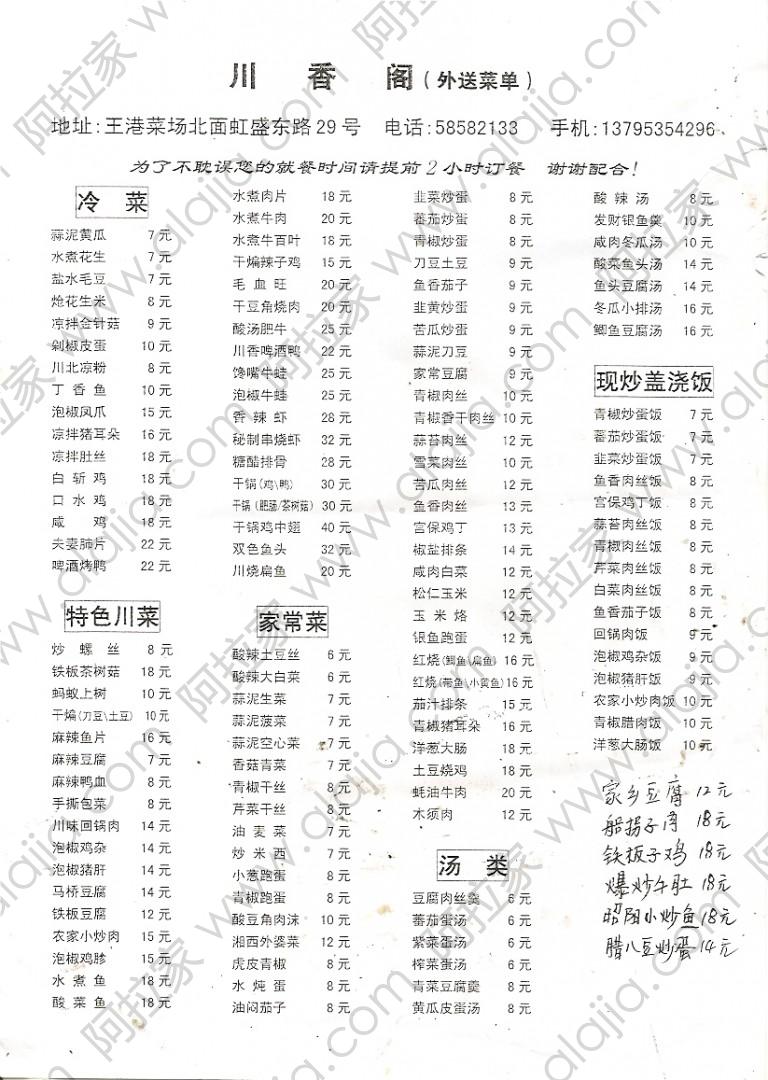 川香阁(外送菜单)
地址:王港菜场北面虹盛东路29号 电话:58582133 手机:13795354296
为了不耽误您的就餐时间请提前2小时订餐 谢谢配合!
冷菜
蒜泥黄瓜 7元
水煮花生 7元
盐水毛豆 7元
炝花生米 8元
凉拌金针菇 9元
剁椒皮蛋 10元
川北凉粉 8元
丁香鱼 10元
泡椒凤爪 15元
凉拌猪耳朵 16元
凉拌肚丝 18元
白斩鸡 18元
口水鸡 18元
咸鸡 18元
夫妻肺片 22元
啤酒烤鸭 22元
特色川菜
炒螺丝 8元
铁板茶树菇 18元
蚂蚁上树 10元
干煸(刀豆\土豆) 10元
麻辣鱼片 16元
麻辣豆腐 7元
麻辣鸭血 8元
手撕包菜 8元
川味回锅肉 14元
泡椒鸡杂 14元
泡椒猪肝 14元
马桥豆腐 14元
铁板豆腐 12元
农家小炒肉 15元
泡椒鸡胗 15元
水煮鱼 18元
酸菜鱼 18元
水煮肉片 18元
水煮牛肉 20元
水煮牛百叶 18元
干煸辣子鸡 15元
毛血旺 20元
干豆角烧肉 20元
酸汤肥牛 25元
川香啤酒鸭 22元
馋嘴牛蛙 25元
泡椒牛蛙 25元
香辣虾 28元
秘制串烧虾 32元
糖醋排骨 28元
干锅(鸡\鸭) 30元
干锅(肥肠/茶树菇) 30元
干锅鸡中翅 40元
双色鱼头 32元
川烧扁鱼 20元
家常菜
酸辣土豆丝 6元
酸辣大白菜 6元
蒜泥生菜 7元
蒜泥菠菜 7元
蒜泥空心菜 7元
香菇青菜 7元
青椒干丝 8元
芹菜干丝 8元
油麦菜 7元
炒米西 7元
小葱跑蛋 8元
青椒跑蛋 8元
酸豆角肉沫 10元
湘西外婆菜 12元
虎皮青椒 8元
水炖蛋 8元
油闷茄子 8元
韭菜炒蛋 8元
蕃茄炒蛋 8元
青椒炒蛋 8元
刀豆土豆 9元
鱼香茄子 9元
韭黄炒蛋 9元
苦瓜炒蛋 9元
蒜泥刀豆 9元
家常豆腐 9元
青椒肉丝 10元
青椒香干肉丝 10元
蒜苔肉丝 12元
雪菜肉丝 10元
苦瓜肉丝 12元
鱼香肉丝 13元
宫保鸡丁 13元
椒盐排条 14元
咸肉白菜 12元
松仁玉米 12元
玉米烙 12元
银鱼跑蛋 12元
红烧(鲫鱼\扁鱼) 16元
红烧(带鱼\小黄鱼) 16元
茄汁排条 15元
青椒猪耳朵 16元
洋葱大肠 18元
土豆烧鸡 18元
蚝油牛肉 20元
木须肉 12元
汤类
豆腐肉丝羹 6元
蕃茄蛋汤 6元
紫菜蛋汤 6元
榨菜蛋汤 6元
青菜豆腐羹 8元
黄瓜皮蛋汤 8元
酸辣汤 8元
发财银鱼羹 10元
咸肉冬瓜汤 10元
酸菜鱼头汤 14元
鱼头豆腐汤 14元
冬瓜小排汤 16元
鲫鱼豆腐汤 16元
现炒盖浇饭
青椒炒蛋饭 7元
蕃茄炒蛋饭 7元
韭菜炒蛋饭 7元
鱼香肉丝饭 8元
宫保鸡丁饭 8元
蒜苔肉丝饭 8元
青椒肉丝饭 8元
芹菜肉丝饭 8元
白菜肉丝饭 8元
鱼香茄子饭 8元
回锅肉饭 9元
泡椒鸡杂饭 9元
泡椒猪肝饭 9元
农家小炒肉饭 10元
青椒腊肉饭 10元
洋葱大肠饭 10元
家乡豆腐 12元
船拐子肉 18元
铁板子鸡 18元
爆炒牛肚 18元
昭阳小炒鱼 18元
腊八豆炒蛋 14元
阿拉家 www.alajia.com